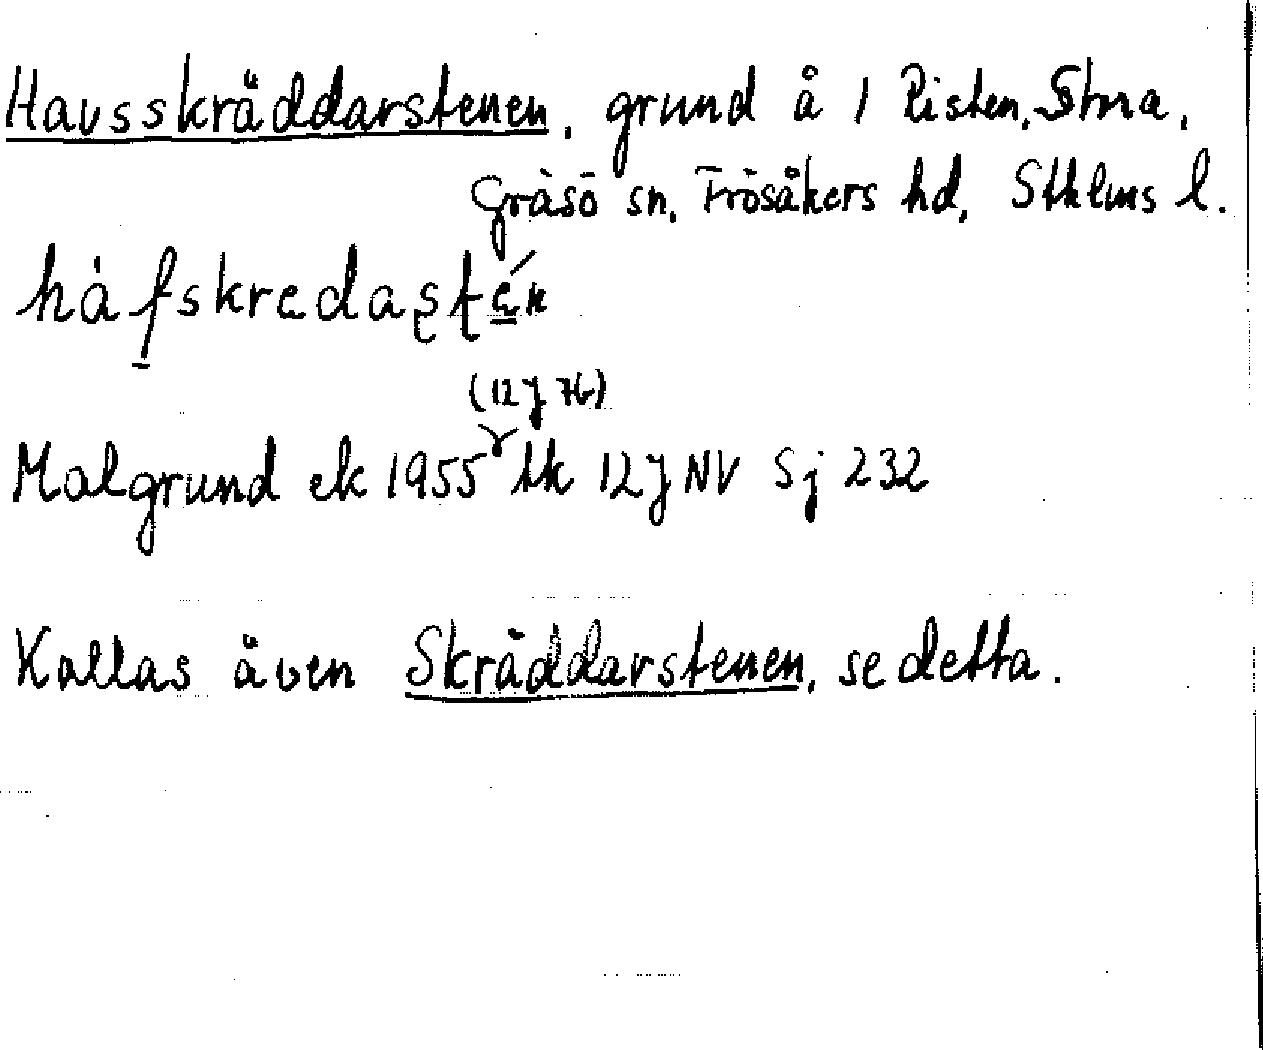 Havsskräddarstenen, grund å 1 Risten, Stora,
Gräsö sn, Frösåkers hd, Sthlms l.
hàfskredasten
(12J7b)
Malgrund ek 1955 tk 12J NV Sj 232
Kallas även Skräddarstenen, se detta.